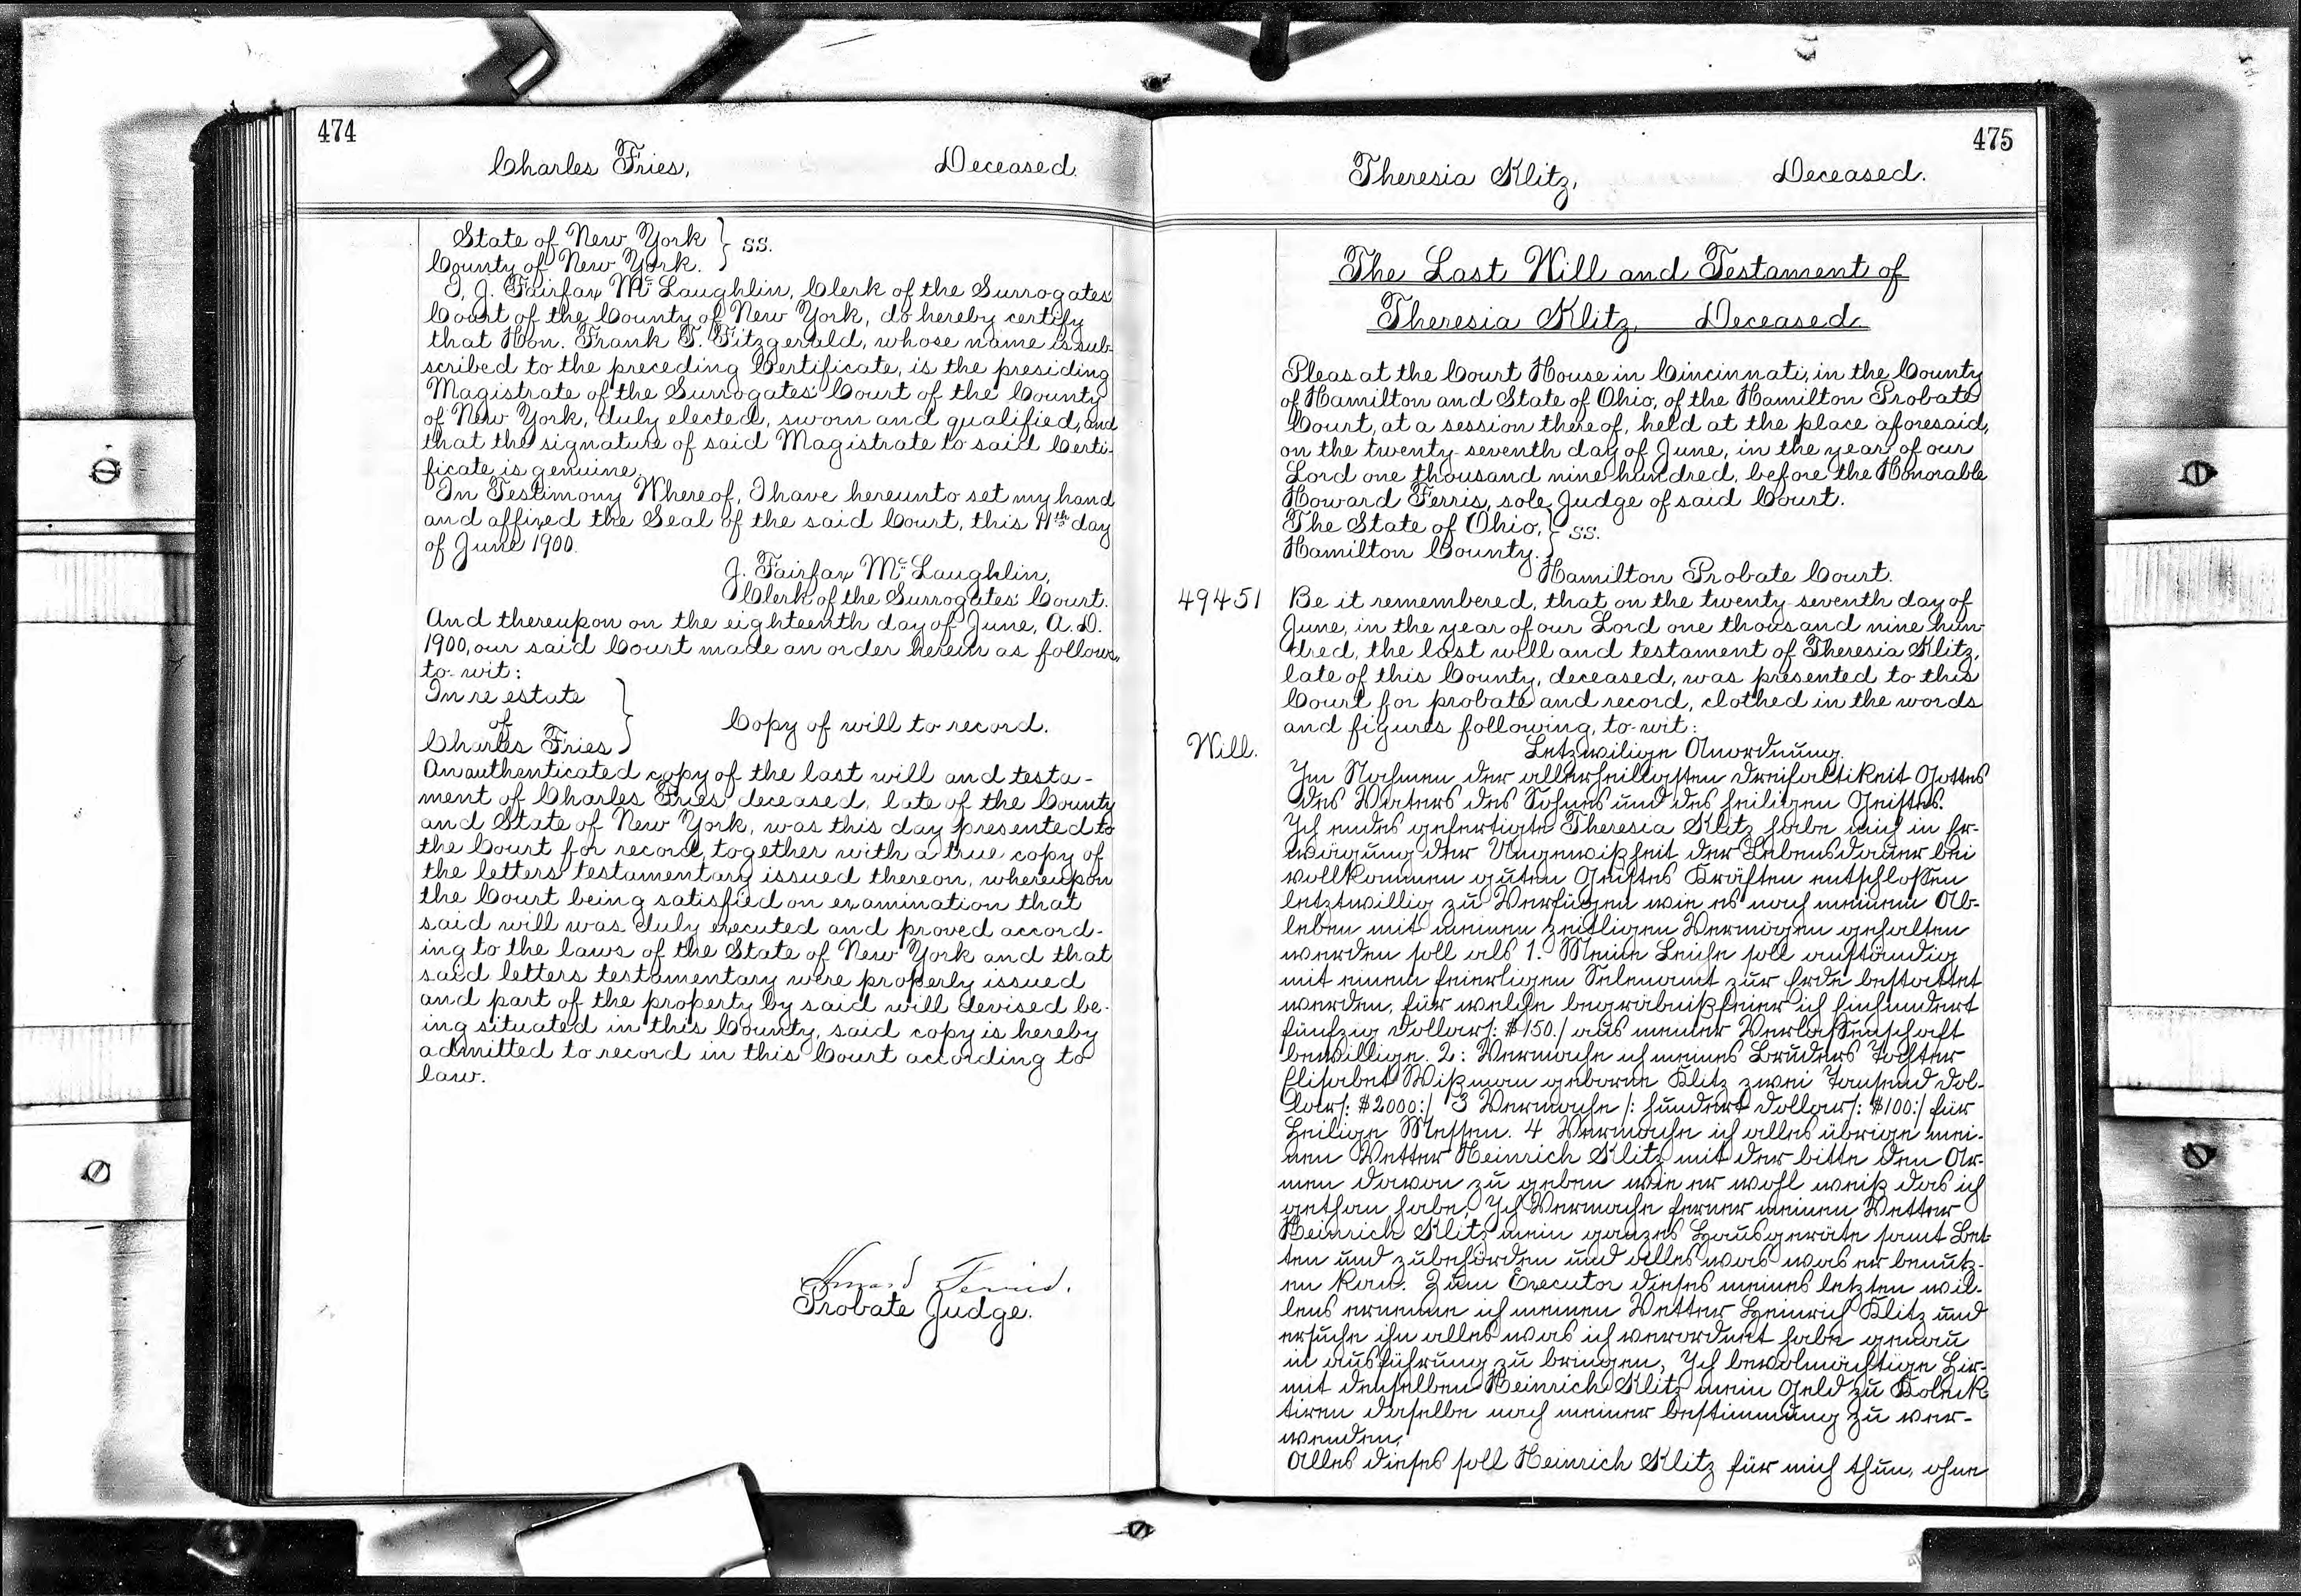 474
Charles Fries, Deceased.
State of New York } ss.
County of New York. }
I, J. Fairfax McLaughlin, Clerk of the Surrogates'
Court of the County of New York, do hereby certify
that Hon. Frank T. Fitzgerald, whose name is sub-
scribed to the preceding Certificate, is the presiding
Magistrate of the Surrogates' Court of the County
of New York, duly elected, sworn and qualified, and
that the signature of said Magistrate to said Certi-
ficate is genuine.
In Testimony Whereof, I have hereunto set my hand
and affixed the Seal of the said Court, this 11th day
of June 1900.
J. Fairfax McLaughlin,
Clerk of the Surrogates' Court.
And thereupon on the eighteenth day of June, A.D.
1900, our said Court made an order herein as follows,
to-wit:
In re estate
of
Charles Fries } Copy of will to record.
An authenticated copy of the last will and testa-
ment of Charles Fries deceased, late of the County
and State of New York, was this day presented to
the Court for record, together with a true copy of
the letters testamentary issued thereon, whereupon
the Court being satisfied on examination that
said will was duly executed and proved accord-
ing to the laws of the State of New York and that
said letters testamentary were properly issued
and part of the property by said will devised be-
ing situated in this County, said copy is hereby
admitted to record in this Court according to
law.
Howard Ferris.
Probate Judge.
475
Theresia Klitz, Deceased.
The Last Will and Testament of
Theresia Klitz, Deceased.
Pleas at the Court House in Cincinnati, in the County
of Hamilton and State of Ohio, of the Hamilton Probate
Court, at a session thereof, held at the place aforesaid,
on the twenty-seventh day of June, in the year of our
Lord one thousand nine hundred, before the Honorable
Howard Ferris, sole Judge of said Court.
The State of Ohio, } ss.
Hamilton County. }
Hamilton Probate Court.
49451 Be it remembered, that on the twenty-seventh day of
June, in the year of our Lord one thousand nine hun-
dred, the last will and testament of Theresia Klitz,
late of this County, deceased, was presented to this
Court for probate and record, clothed in the words
and figures following, to-wit:
Will. Letzwilige Anordnung.
Im Nahmen der allerheiligsten Dreifaltikeit Gottes
des Vaters des Sohnes und des heiligen Geistes.
Ich endes gefertigte Theresia Klitz habe mich in Er-
wägung der Ungewißheit der Lebensdauer bei
vollkommen guten Geistes Kräften entschlossen
letztwillig zu Verfügen wie es nach meinem Ab-
leben mit meinen zeitligen Vermögen gehalten
werden soll als 1. Meine Leiche soll anständig
mit einem feierligem Selenamt zur Erde bestattet
werden, für welche begräbnißfeier ich Einhundert
fünfzig Dollar/: $150./ aus meiner Verlassenschaft
bewillige. 2: Vermache ich meines Bruders Tochter
Elisabet Wißman geborne Klitz zwei Tausend Dol-
lar/: $2000:/ 3 Vermache /: hundert Dollar/: $100:/ für
Heilige Messen. 4 Vermache ich alles übrige mei-
nen Vetter Heinrich Klitz mit der bitte den Ar-
men davon zu geben wie er wohl weiß das ich
gethan habe, Ich Vermache ferner meinen Vetter
Heinrich Klitz mein ganzes Hausgeräte samt Bet-
ten und zubehörden und alles was was er benutz-
en kan. Zum Executor dieses meines letzten wil-
lens ernenne ich meinen Vetter Heinrich Klitz und
ersuche ihn alles was ich verordnet habe genau
in ausführung zu bringen, Ich bevolmächtige Hir-
mit denselben Heinrich Klitz mein Geld zu Kolek-
tiren daselbe nach meiner bestimmung zu ver-
wenden.
Alles dieses soll Heinrich Klitz für mich thun, ohne